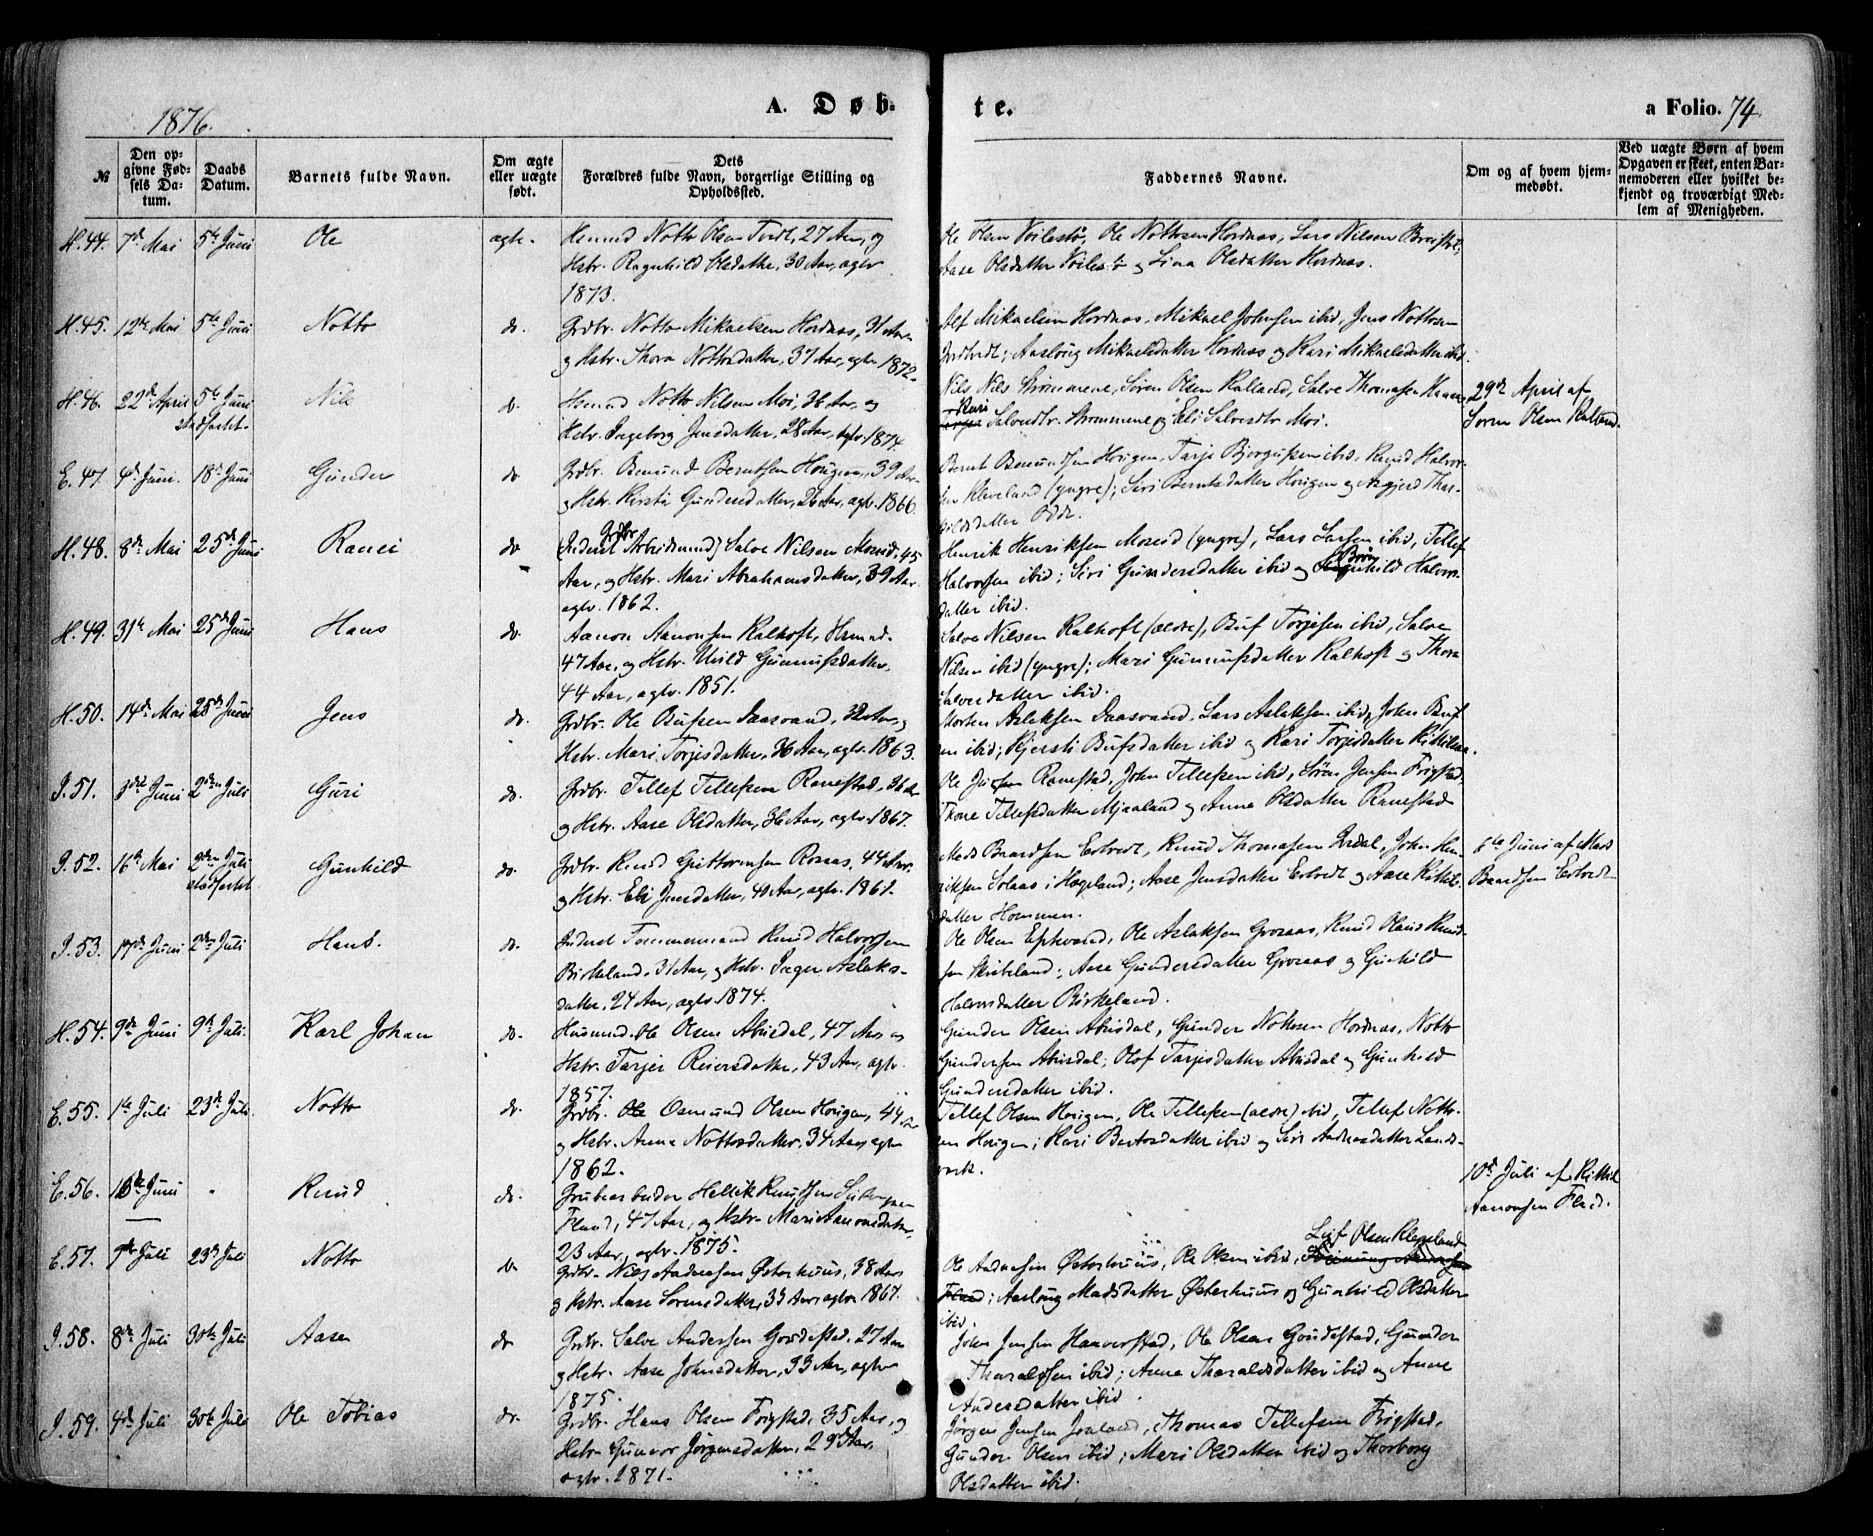 1876.
A. Døb-
te.
a Folio. 74.
№
Den op-
givne Fød-
sels Da-
tum.
Daabs
Datum.
Barnets fulde Navn.
Om ægte
eller uægte
født.
Dets
Forældres fulde Navn, borgerlige Stilling og
Opholdssted.
Faddernes Navne.
Om og af hvem hjem-
medøbt.
Ved uægte Børn af hvem
Opgaven er skeet, enten Bar-
nemoderen eller hvilket be-
kjendt og troværdigt Med-
lem af Menigheden.
H. 44. 7de Mai 5te Juni Ole ægte. Notto Olsen Tvedt, 27 Aar, og
Hstr. Ragnhild Olsdatter, 30 Aar, agtv.
1873.
Ole Olsen Ole Nottosen Hordnæs, Lars Nilsen
Aase Olsdatter og Olsdatter Hordnæs.
H. 45. 12te Mai 5te Juni Notto do. Grdbr. Notto Mikaelsen Hordnæs, 31 Aar
og Hstr. Thora Nottosdatter, 37 Aar, agtv. 1872.
Alf Mikaelsen Hordnæs, Mikael Johnsen ibid, Jens Nottosen
Aaslaug Mikaelsdatter Hordnæs og Kari Mikaelsdatter ibid.
H. 46. 22de April 5te Juni Nils do. Notto Nilsen Moi, 36 Aar, og
stadfæstet.
Hstr. Ingeborg Jensdatter, 28 Aar, agtv. 1874.
Nils Nils Strømmene, Søren Olsen Kalland, Salve Thomasen
Kari Salvesdtr. Strømmene og Eli Salvesdtr Moi.
29de April af
Søren Olsen Kalland.
E. 47. 4de Juni. 18de Juni Gunder do Grdbr. Bentsen Horigen, 39 Aar
og Hstr. Kirsti Gundersdatter, 26 Aar, agtv. 1866.
Bernt Horigen, Tarje ibid, Knud Halvor-
sen Kleveland (yngre); Siri Berntsdatter Horigen og Thar-
aldsdatter Odde.
H. 48. 8de Mai 25de Juni Ranei do Grdbr
(Inderst Arbeidsmand) Salve Nilsen 45
Aar, og Hstr. Mari Abrahamsdatter, 39 Aar.
agtv. 1862.
Henrik Henriksen (yngre), Lars Larsen ibid, Tellef
Halvorsen ibid; Siri Gundersdatter ibid og Halvors-
datter ibid.
H. 49. 31te Mai 25de Juni Hans do. Aanon Aanonsen Kalhoft,
47 Aar, og Hstr. Gunnufsdatter,
44 Aar, agtv. 1851.
Salve Nilsen Kalhoft (ældre), Buf Torjesen ibid, Salve
Nilsen ibid (yngre); Mari Gunnufsdatter Kalhoft og Thora
Salvesdatter ibid.
H. 50. 14de Mai 25de Juni Jens do. Grdbr. Ole Bufsen Daasvand, 32 Aar, og
Hstr. Mari Torjesdatter, 36 Aar, agtv. 1863.
Morten Aslaksen Daasvand, Lars Aslaksen ibid, John Buf-
sen ibid; Kjersti Bufsdatter ibid og Kari Torjesdatter
I. 51. 3die Juni 2den Juli Guri do. Grdbr. Tellef Tellefsen Ravnestad, 36 Aar
og Hstr. Aase Olsdatter, 36 Aar, agtv. 1867.
Ole Ravnestad, John Tellefsen ibid, Søren Jensen Frigstad,
Thone Tellefsdatter Mjaaland og Anne Olsdatter Ravnestad
I. 52. 16de Mai 2den Juli Gunhild do. Grdbr. Knud Guttormsen Rosaas, 44 Aar
stadfæstet
og Hstr. Eli Jensdatter, 40 Aar, agtv. 1861.
Mads Baardsen Knud Thomasen John Hen-
riksen Solaas i Hægeland; Aase Jensdatter og Aase
datter Hommen.
6te Juni af Mads
Baardsen
I. 53. 17de Juni 2den Juli Hans. do. Inderst Tømmermand Knud Halvorsen
Birkeland, 31 Aar, og Hstr. Inger Aslaks-
datter, 24 Aar, agtv. 1874.
Ole Olsen Ole Aslaksen Groraas, Knud Olaus Knud-
sen Skibeland; Aase Gundersdatter Groraas og Gunhild
Halvorsdatter Birkeland.
H. 54. 9de Juni 9de Juli. Karl Johan do. Ole Olsen Abusdal, 47 Aar og
Hstr. Tarjer Reiersdatter, 43 Aar, agtv.
1857.
Gunder Olsen Abusdal, Gunder Nottosen Hordnæs, Notto
Gundersen Abusdal; Olof Tarjesdatter Abusdal og Gunhild
Gundersdatter ibid.
E. 55. 1te Juli 23de Juli. Notto do. Grdbr. Osmund Olsen Horigen, 44 Aar
og Hstr. Anne Nottosdatter, 34 Aar, agtv
1862.
Tellef Olsen Horigen, Ole Tellefsen (ældre) ibid, Tellef Notto-
sen Horigen; Kari ibid og Siri Andreasdatter Lands-
verk.
E. 56. 16de Juni " Knud do. Grubearbeider Hellik Knudsen
Flaad, 47 Aar, og Hstr. Mari Aanonsdatter,
23 Aar, agtv. 1875.
10de Juli af Kittil
Aanonsen Flaad.
E. 57. 7de Juli 23de Juli Notto do Grdbr. Nils Andersen Østerhuus, 38 Aar
og Hstr. Aase Sørensdatter, 33 Aar, agtv. 1867.
Leif Olsen Kleveland
Ole Andersen Østerhuus, Ole Olsen ibid,
Flaad; Aaslaug Madsdatter Østerhuus og Gunhild Olsdatter
ibid.
I. 58. 8de Juli 30te Juli Aase do Grdbr. Salve Andersen Gondestad, 27 Aar
og Hstr. Aase Johnsdatter, 33 Aar, agtv
1875.
John Jensen Haaverstad, Ole Olsen Gondestad, Gunder
Tharaldsen ibid; Anne Tharaldsdatter ibid og Anne
Andersdatter ibid.
I. 59. 4de Juli 30te Juli Ole Tobias do. Grdbr. Hans Olsen Frigstad, 35 Aar, og
Hstr. Gunvor Jørgensdatter, 29 Aar,
agtv. 1871.
Jørgen Jensen Thomas Tellefsen Frigstad,
Gunder Olsen ibid; Mari Olsdatter ibid og Thorborg
Olsdatter ibid.